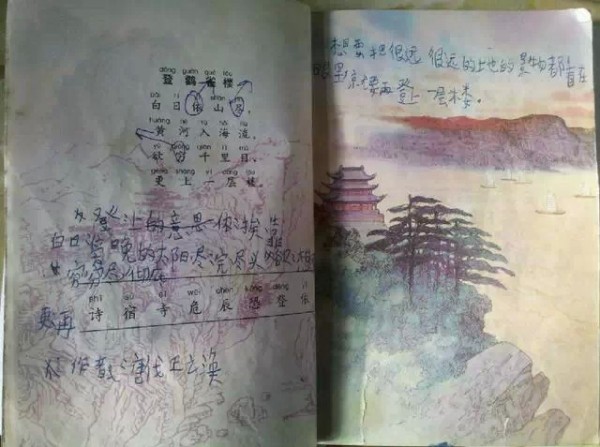 dēng guàn què lóu
登鹳雀楼
bái rì yī shān jìn
白日依山尽，
huáng hé rù hǎi liú
黄河入海流。
yù qióng qiān lǐ mù
欲穷千里目，
gèng shàng yī céng lóu
更上一层楼。
登上的意思 依挨着
白日傍晚的太阳尽完尽头
穷尽
更再
shī sù sì wēi chén kǒng dēng
诗宿寺危辰恐登
作者唐代王之涣
想要把很远很远的土地的景物都看在
再登上一层楼。